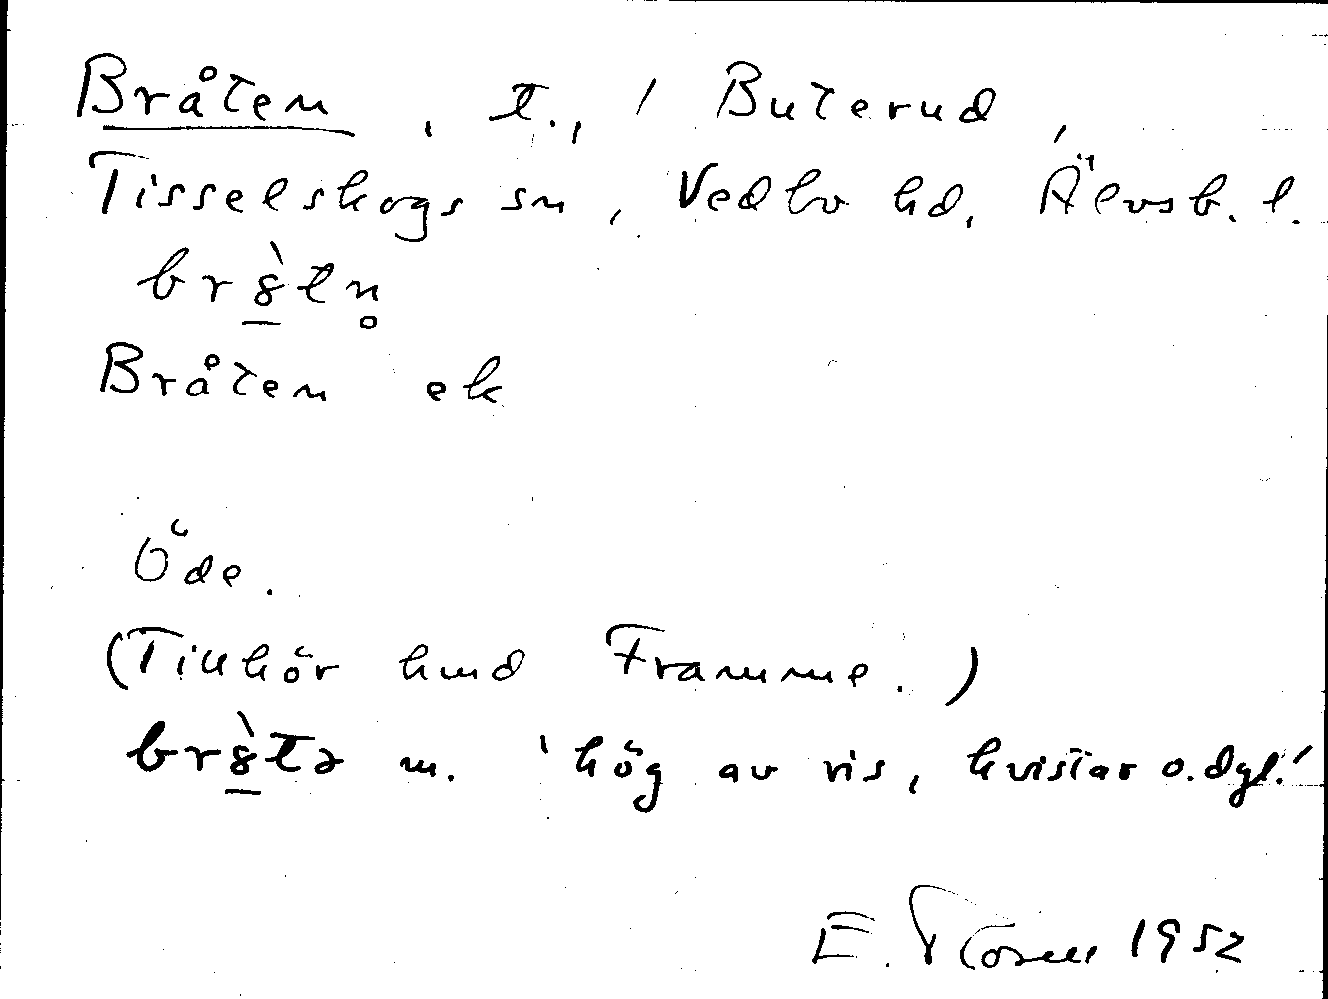 Bråten, t., / Buterud,
Tisselskogs sn, Vedbo hd, Älvsb. l.
br8̲̀tn̥
Bråten ek
Öde.
(Tillhör hmd Framme.)
br8̲̀tə m. 'hög av vis, kvistar o.dyl.'
E. 1952